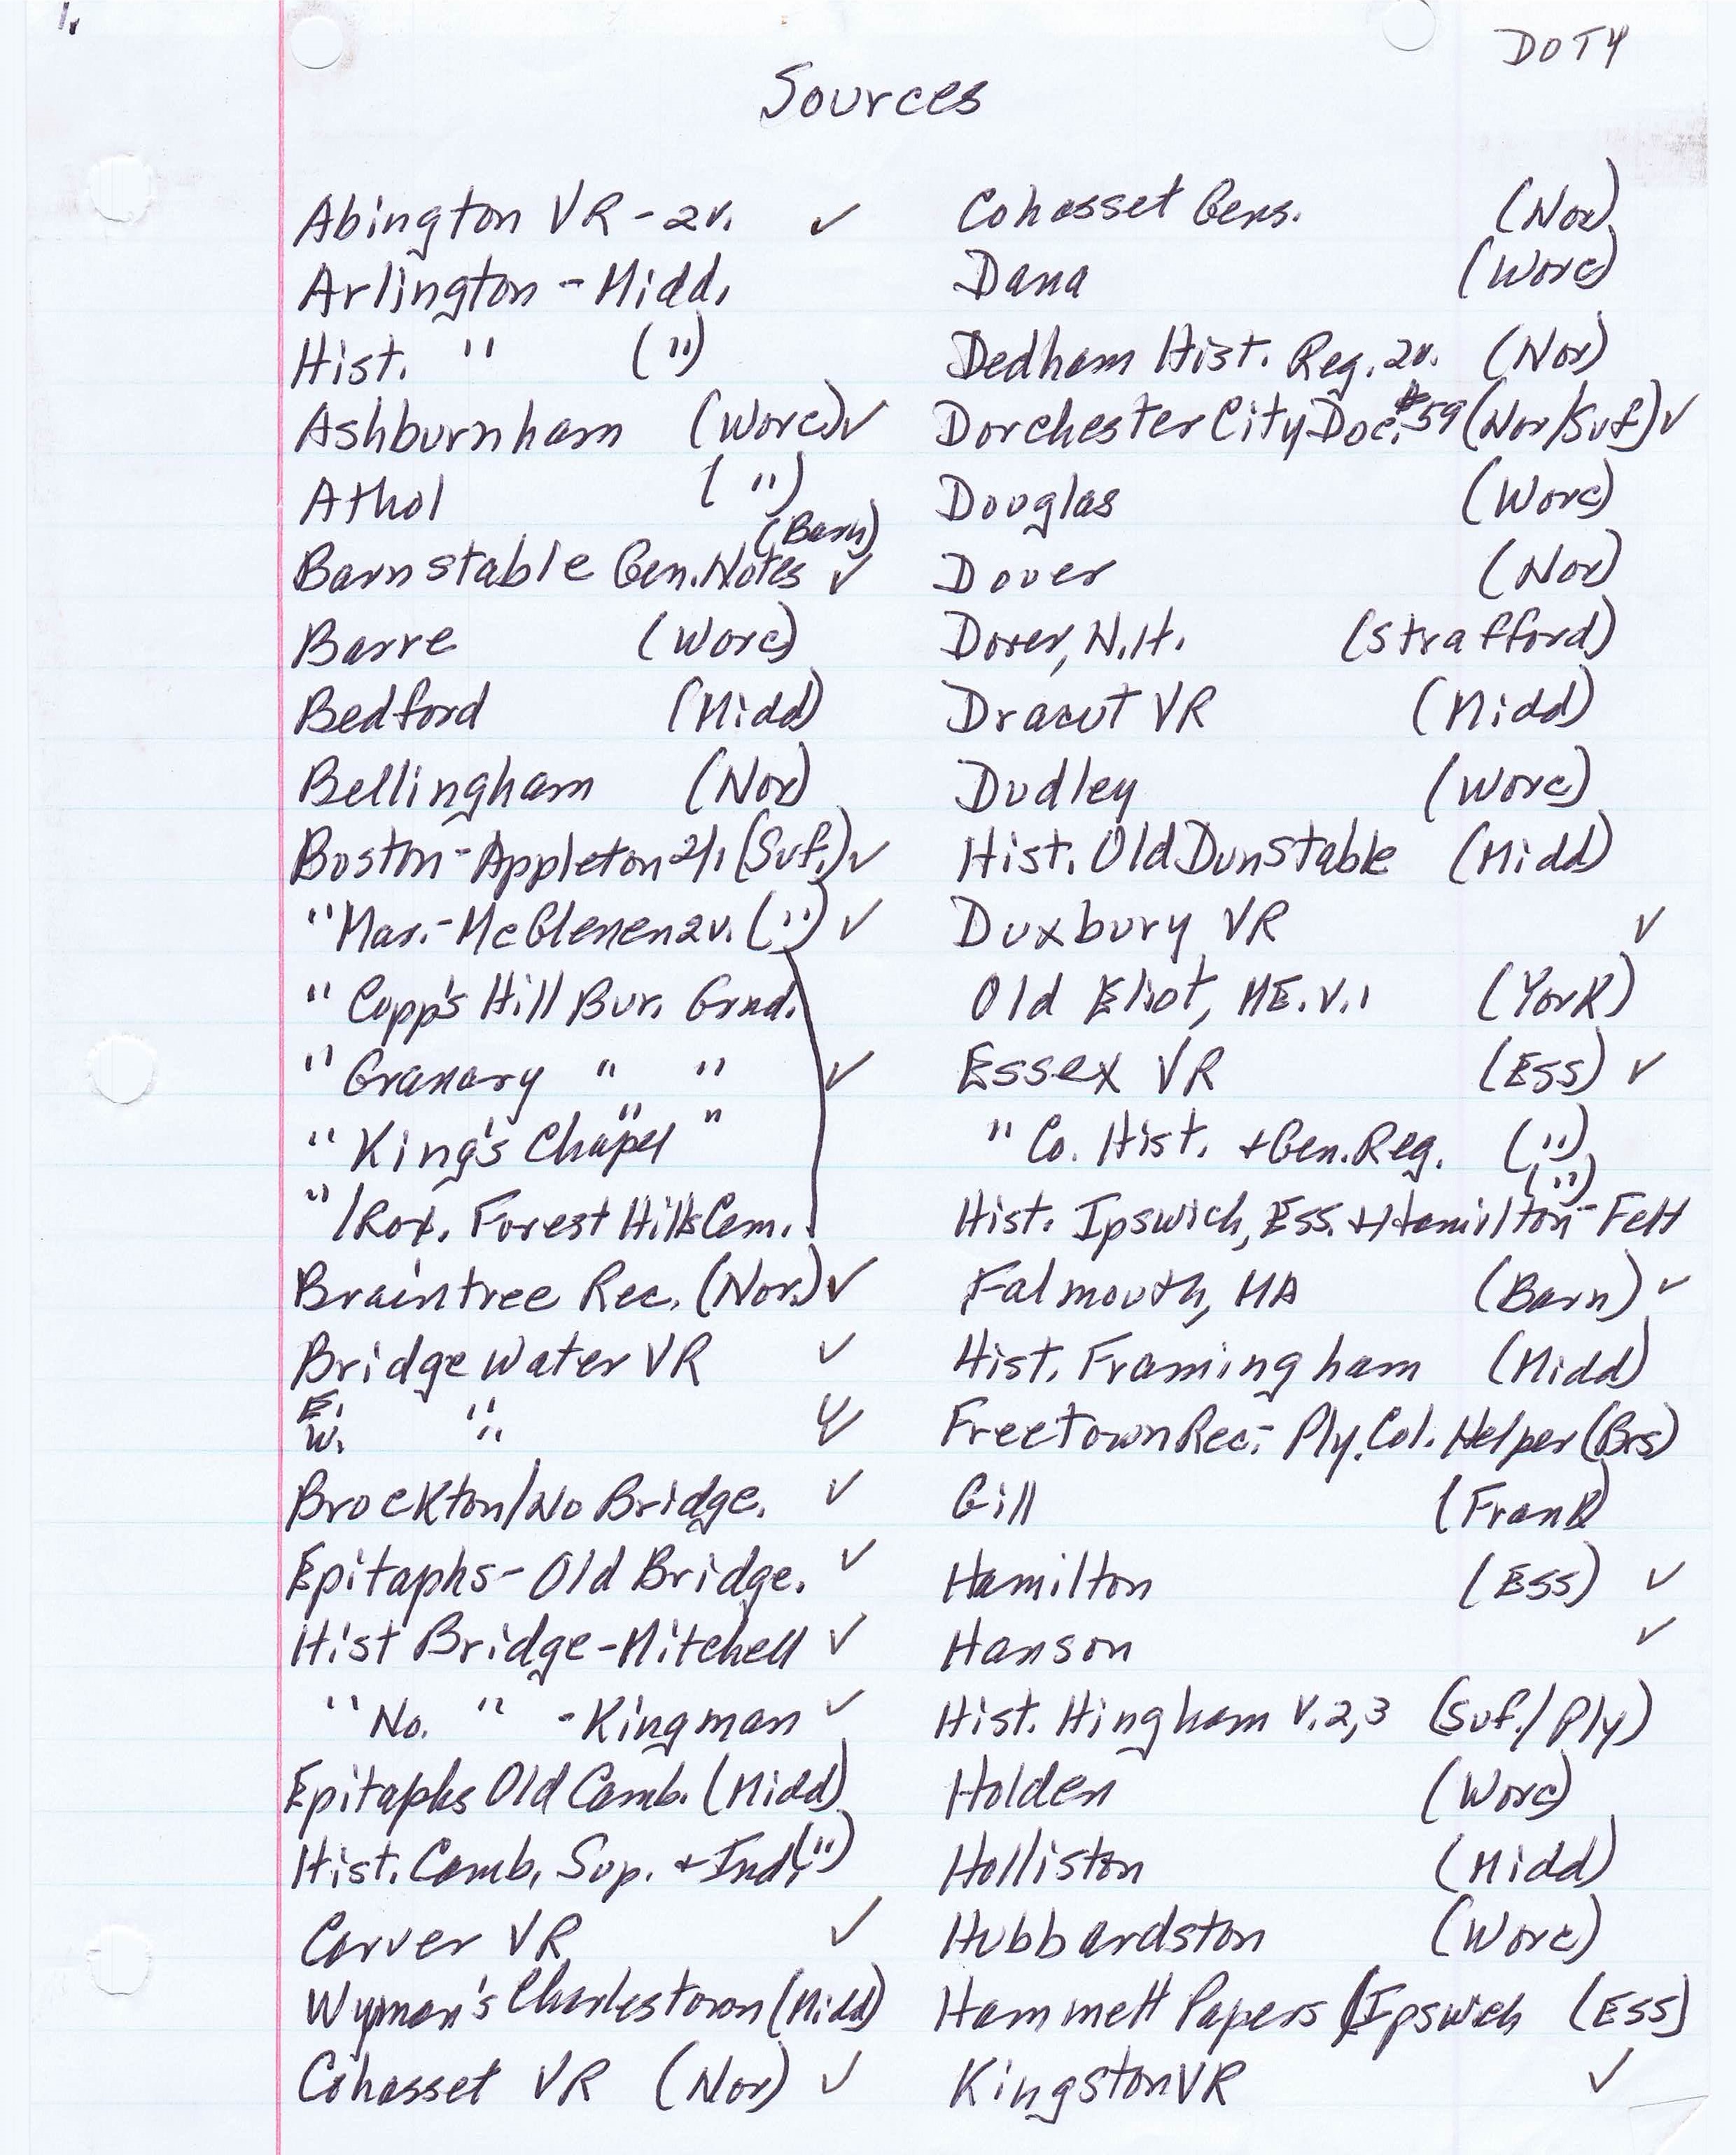 1.
DOTY
Sources
Abington VR - 2v. ✓
Arlington - Midd.
Hist. " (")
Ashburnham (Worc) ✓
Athol (")
(Barn)
Barnstable Gen. Notes ✓
Barre (Worc)
Bedford (Midd)
Bellingham (Nor)
Boston - Appleton 2v. (Suf.) ✓
" Mar. - McGlenen 2v. (") ✓
" Copp's Hill Bur. Grnd.
" Granary " " ✓
" King's Chapel " "
" /Rox. Forest Hills Cem.
Braintree Rec. (Nor.) ✓
Bridgewater VR ✓
E. " ✓
W. " ✓
Brockton/No Bridge. ✓
Epitaphs - Old Bridge. ✓
Hist Bridge - Mitchell ✓
" No. " - Kingman ✓
Epitaphs Old Camb. (Midd)
Hist. Camb. Sup. + Ind. (")
Carver VR ✓
Wyman's Charlestown (Midd)
Cohasset VR (Nor) ✓
Cohasset Gens. (Nor)
Dana (Worc)
Dedham Hist. Reg. 2v. (Nor)
Dorchester City Doc. #59 (Nor/Suf) ✓
Douglas (Worc)
Dover (Nor)
Dover, N.H. (Strafford)
Dracut VR (Midd)
Dudley (Worc)
Hist. Old Dunstable (Midd)
Duxbury VR ✓
Old Eliot, ME. V.1 (York)
Essex VR (Ess) ✓
" Co. Hist. + Gen. Reg. (")
(")
Hist. Ipswich, Ess. + Hamilton - Felt
Falmouth, MA (Barn) ✓
Hist. Framingham (Midd)
Freetown Rec. - Ply. Col. Helper (Brs)
Gill (Frank)
Hamilton (Ess) ✓
Hanson ✓
Hist. Hingham V. 2,3 (Suf./Ply)
Holden (Worc)
Holliston (Midd)
Hubbardston (Worc)
Hammett Papers /Ipswich (Ess)
Kingston VR ✓